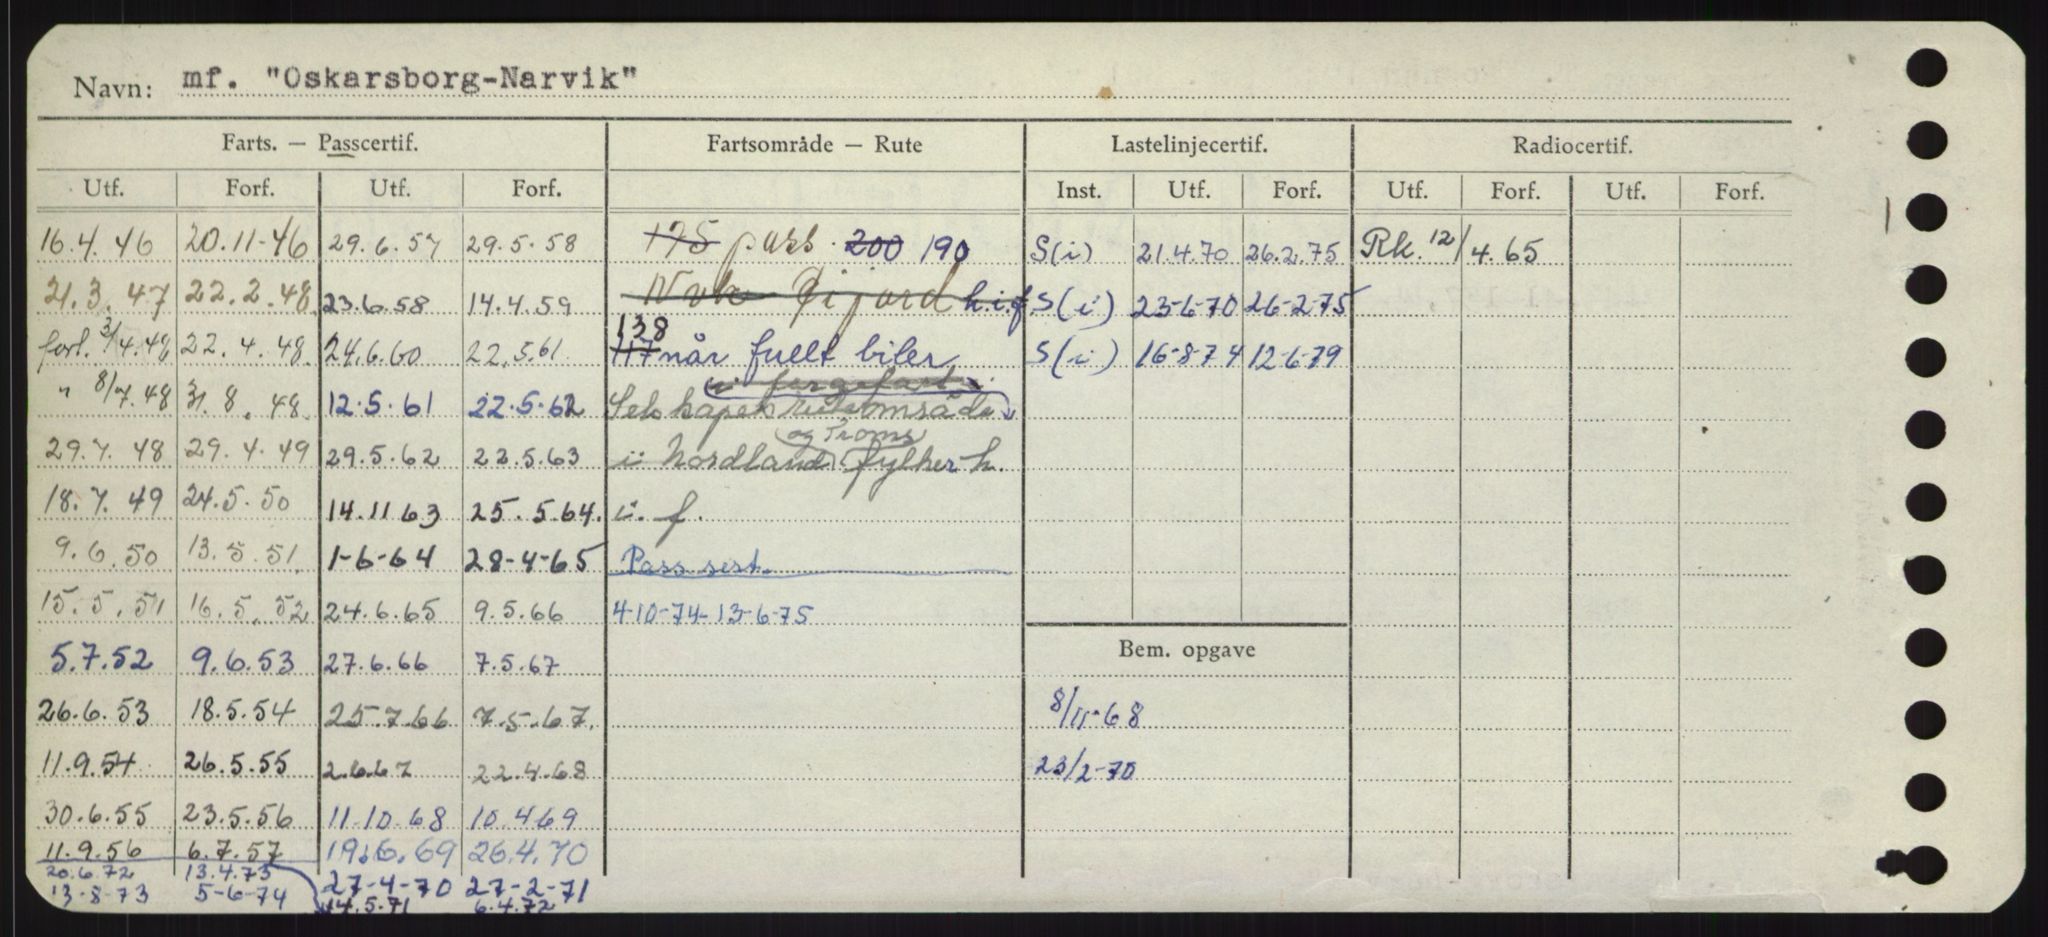 Navn: mf. "Oskarsborg-Narvik"
Farts. — Passcertif. Fartsområde — Rute Lastelinjecertif. Radiocertif.
Utf. Forf. Utf. Forf. Inst. Utf. Forf. Utf. Forf. Utf. Forf.
16.4.46 20.11-46 29.6.57 29.5.58 175 pass. 200 190 S(i) 21.4.70 26.2.75 Rk. 12/4.65
21.3.47 22.2.48. 23.6.58 14.4.59 Nvk Øijord h.i.f S(i) 23-6-70 26-2-75
138
forl. 3/4.48 22.4.48. 24.6.60 22.5.61. 117 når fullt biler S(i) 16-8-74 12-6-79
i fergefart
" 8/7.48 31.8.48. 12.5.61 22.5.62 Selskapets ruteområde
og Troms
29.7.48 29.4.49 29.5.62 22.5.63 i Nordland fylker h.
18.7.49 24.5.50 14.11 63 25.5.64. i. f.
9.6.50 13.5.51. 1-6-64 28-4-65 Pass sert.
15.5.51 16.5.52 24.6.65 9.5.66 4-10-74-13-6-75
5.7.52 9.6.53 27.6.66 7.5.67 Bem. opgave
26.6.53 18.5.54 25.7.66 7.5.67. 8/11-68
11.9.54 26.5.55 2.6.67 22.4.68 23/2-70
30.6.55 23.5.56 11.10.68 10.4.69
11.9.56 6.7.57 19.6.69 26.4.70
20.6.72 13.4.73
13-8-73 5-6-74 27-4-70 27-2-71
14.5.71 6.4.72